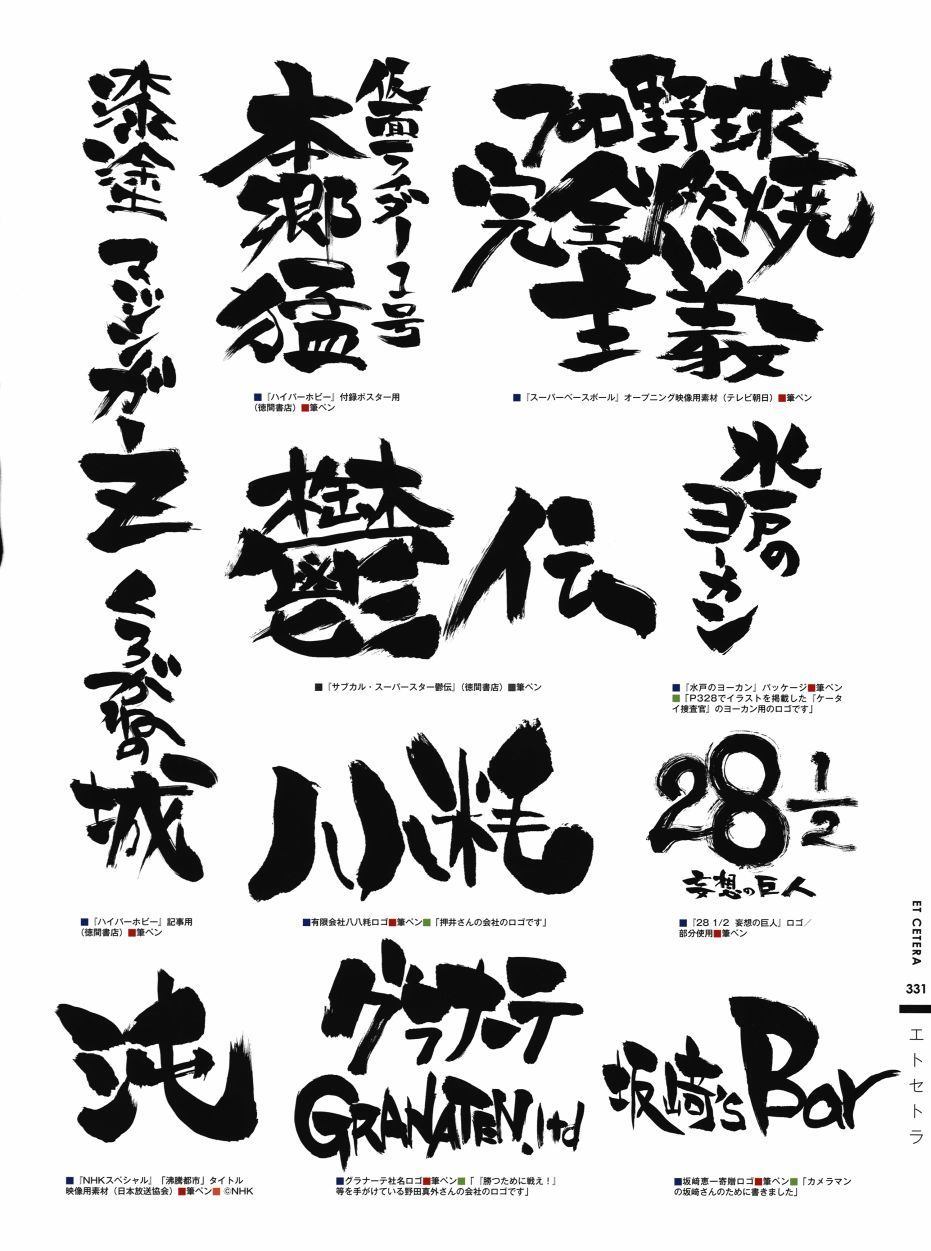 漆塗
マジンガー
Z
くろがねの
城
■『ハイパーホビー』記事用
（徳間書店）■筆ペン
仮面ライダー1号
本郷
猛
■『ハイパーホビー』付録ポスター用
（徳間書店）■筆ペン
プロ野球
完全燃焼
主義
■『スーパーベースボール』オープニング映像用素材（テレビ朝日）■筆ペン
鬱伝
■『サブカル・スーパースター鬱伝』（徳間書店）■筆ペン
水戸の
ヨーカン
■『水戸のヨーカン』パッケージ■筆ペン
■「P328でイラストを掲載した『ケータ
イ捜査官』のヨーカン用のロゴです」
八八粍
■有限会社八八粍ロゴ■筆ペン■「押井さんの会社のロゴです」
28 1/2
妄想の巨人
■『28 1/2 妄想の巨人』ロゴ／
部分使用■筆ペン
沌
■『NHKスペシャル』「沸騰都市」タイトル
映像用素材（日本放送協会）■筆ペン■©NHK
グラナーテ
GRANATEN.ltd
■グラナーテ社名ロゴ■筆ペン■「『勝つために戦え！』
等を手がけている野田真外さんの会社のロゴです」
坂崎's Bar
■坂崎恵一寄贈ロゴ■筆ペン■「カメラマン
の坂崎さんのために書きました」
ET CETERA
331
エトセトラ